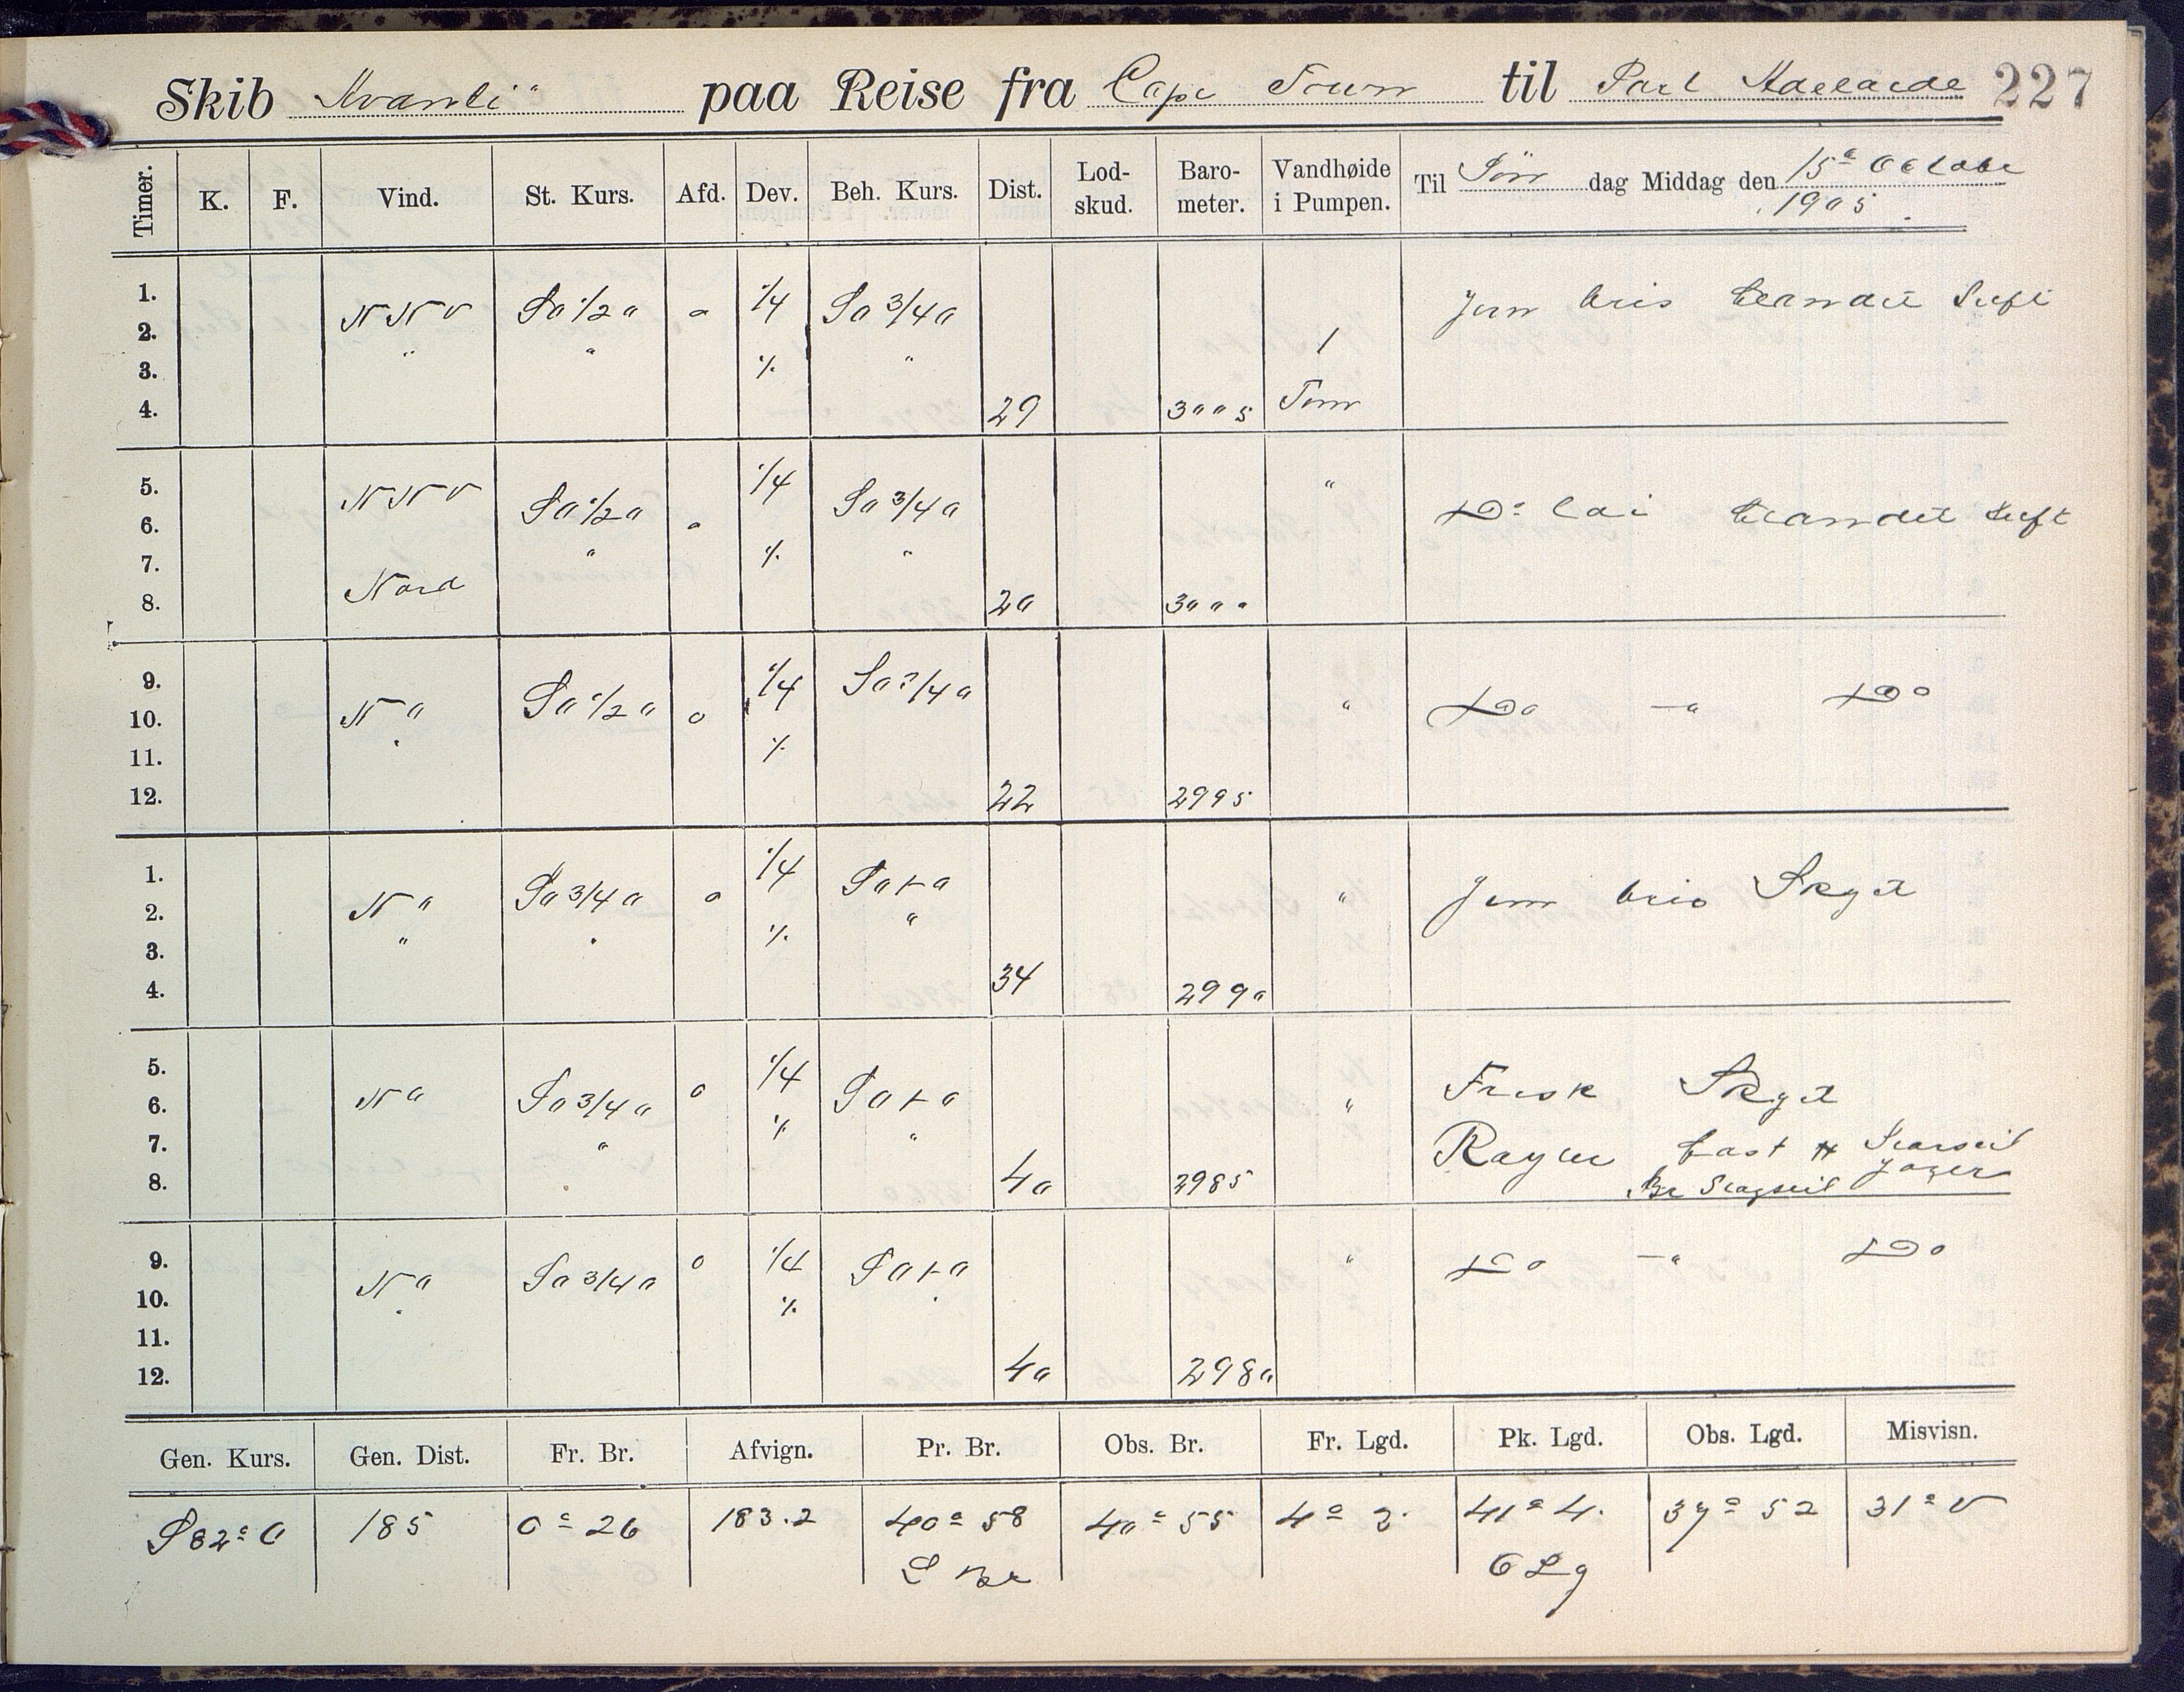 Skib Kvanli" paa Reise fra Cape Town til Port Adelaide 227
Timer. K. F. Vind. St. Kurs. Afd. Dev. Beh. Kurs. Dist. Lod-skud. Baro-meter. Vandhøide i Pumpen. Til Søn dag Middag den 15de October
1905.
1. NNV SO 1/2 O o 1/4 SO 3/4 O Jevn bris blandet Luft
2. 1
3. " " % "
4. 29 3005 Tom
5. NNV 1/4 "
6. SO 1/2 O o SO 3/4 O Do lai blandet Luft
7. " % "
8. Nord 20 3000
9. 1/4 SO 3/4 O
10. NO SO 1/2 O o " Do —" Do
11. " %
12. 22 2995
1. 1/4
2. NO SO 3/4 O o SOtO " Jevn bris Skyet
3. " " % "
4. 34 2990
5. 1/4 Frisk Skyet
6. NO SO 3/4 O o SOtO "
7. " % " fast Storseil
8. 40 2985 Br Stagseil Jager
9. NO SO 3/4 O o 1/4 SOtO " Do —" Do
10. " % "
11.
12. 40 2980
Gen. Kurs. Gen. Dist. Fr. Br. Afvign. Pr. Br. Obs. Br. Fr. Lgd. Pk. Lgd. Obs. Lgd. Misvisn.
S 82° O 185 0° 26 183.2 40° 58 40° 55 4° 3. 41° 4. 37° 52 31° V
S Br O Lg